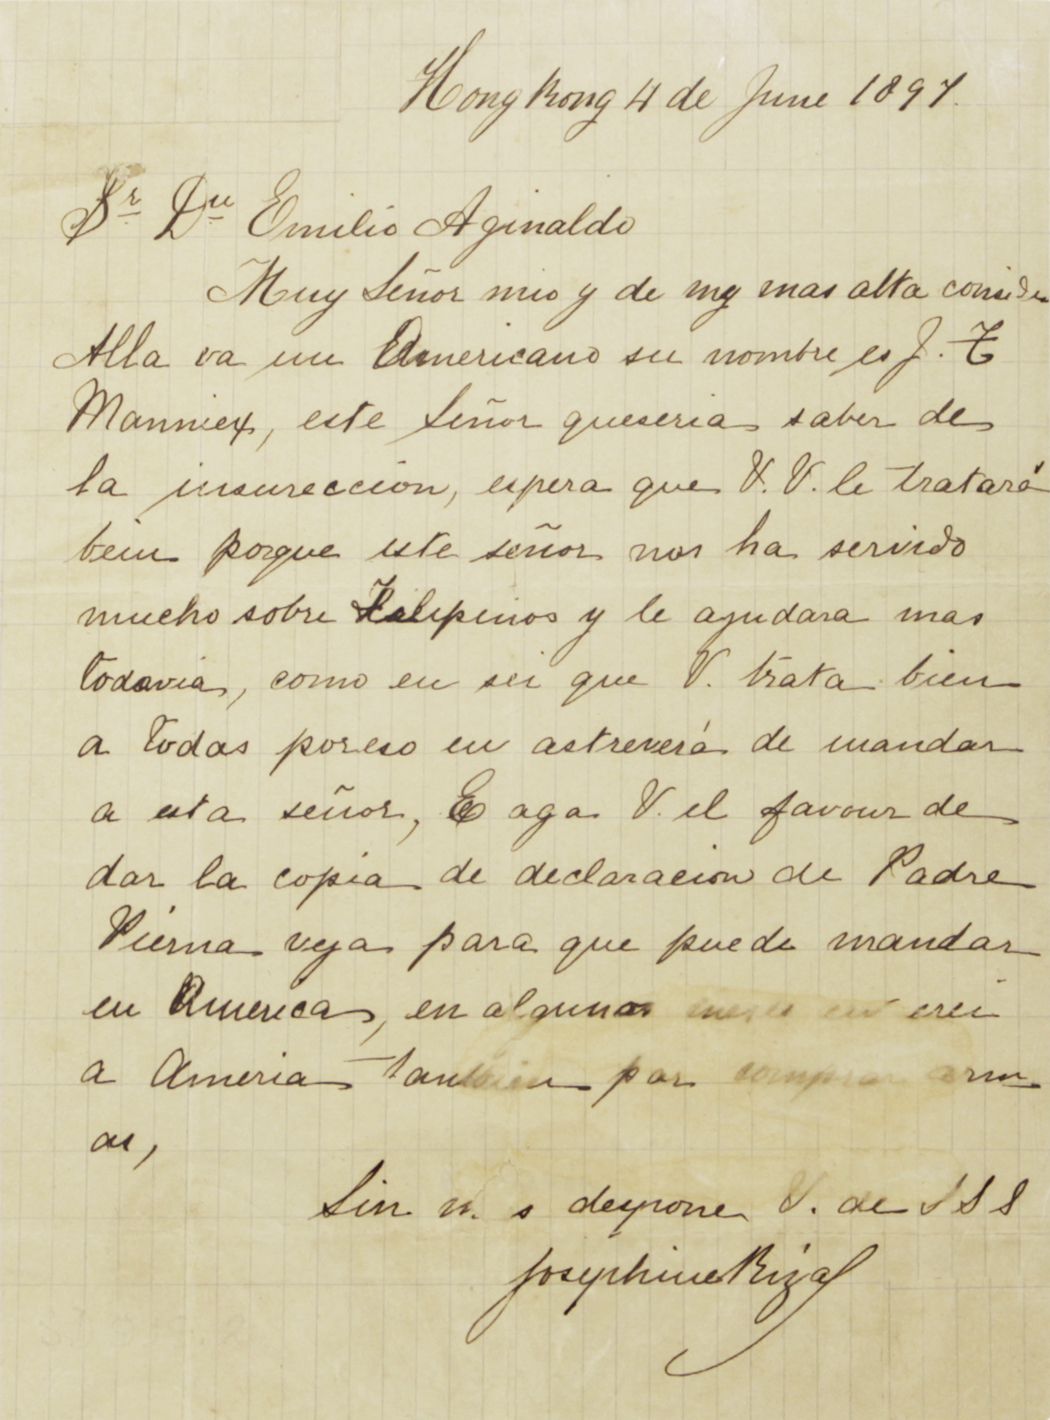 Hong Kong 4 de June 1897.
Sr Dn Emilio Aginaldo
Muy Señor mio y de my mas alta consider
Alla va un Americano su nombre es J. T
Manniex, este Señor queseria saber de
la insurección, espera que V. V. le tratará
bein porque este señor nos ha servido
mucho sobre Filipinos y le ayudara mas
todavia, como en sei que V. trata bien
a todas poreso en astreverá de mandar
a esta señor, E aga V. el favour de
dar la copia de declaracion de Padre
Pierna veja para que puede mandar
en America, en algunas meses en erei
a Ameria tanbien par comprar arm
as,
Sin m s despone V. de S S S
Josephine Rizal